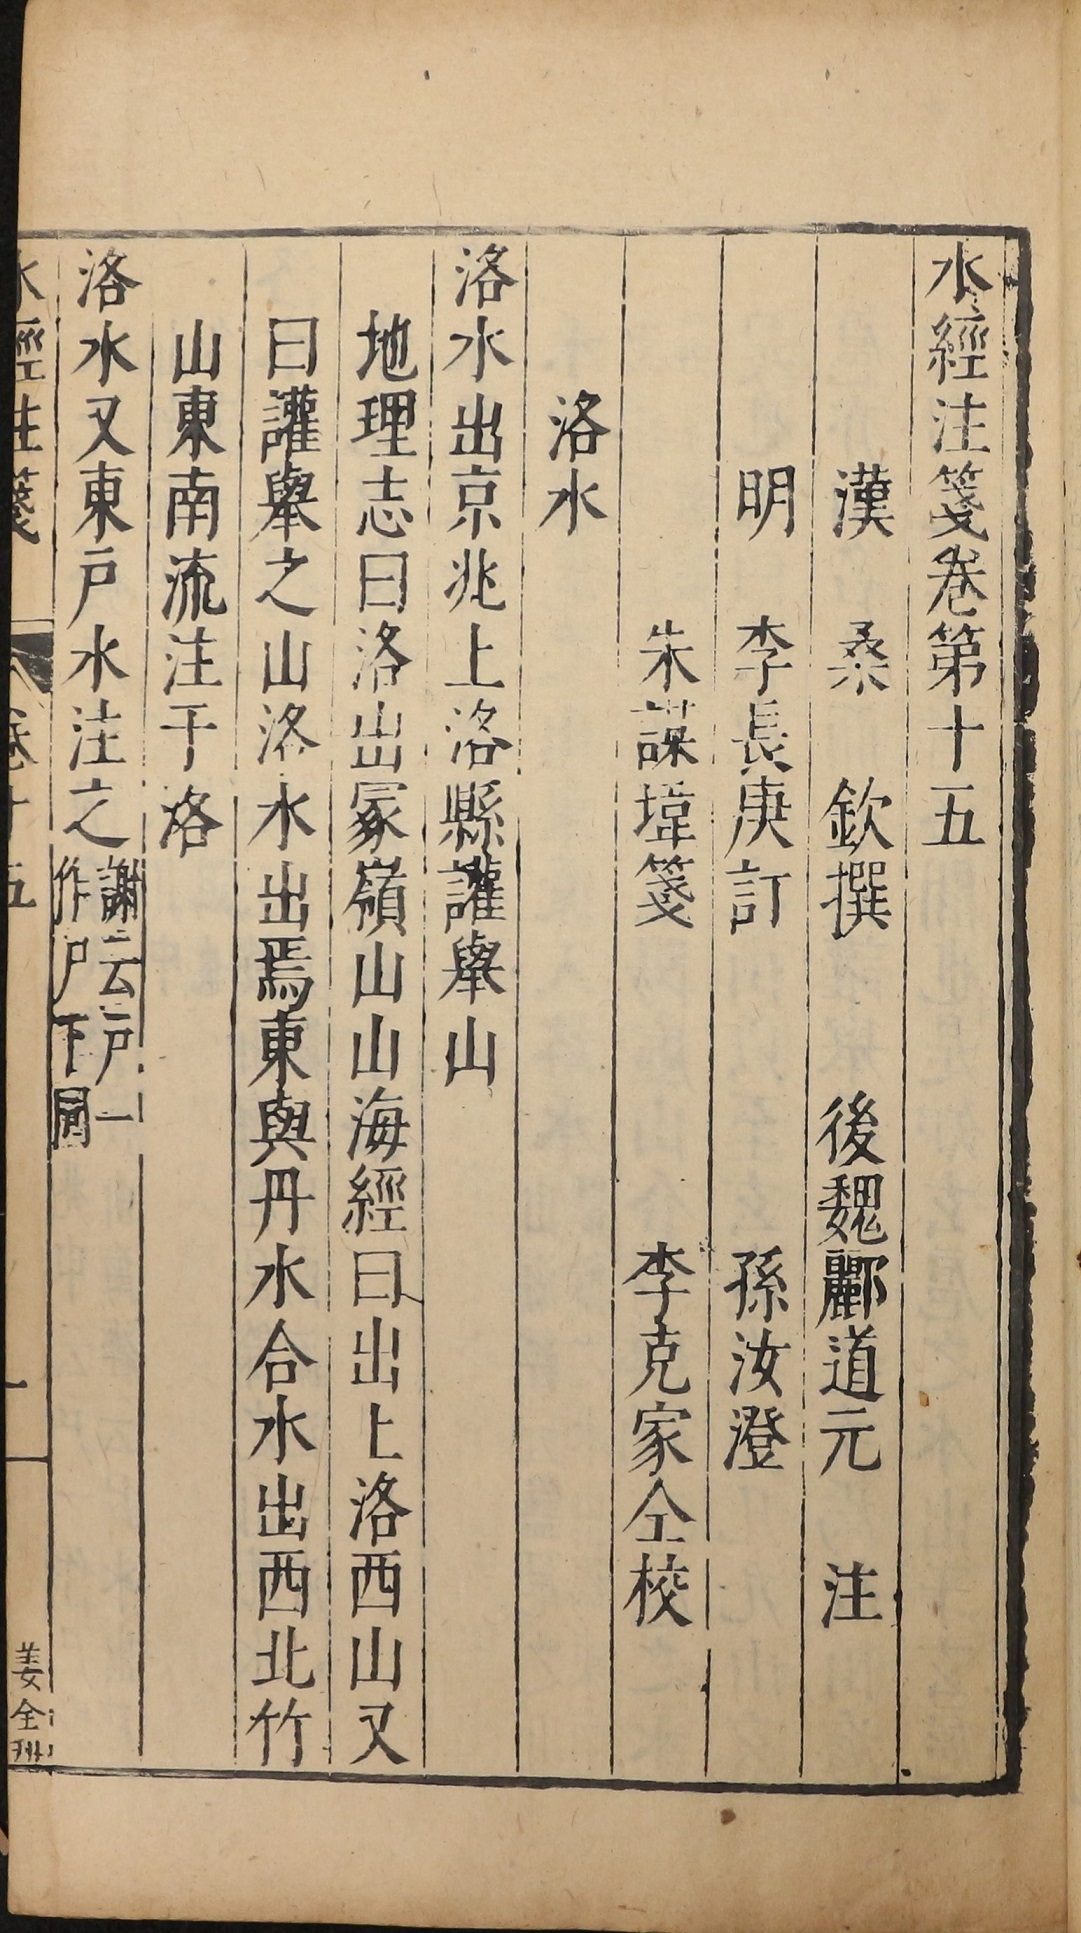 水經注箋卷第十五
漢 桑 欽撰 後魏酈道元 注
明 李長庚訂 孫汝澄
朱謀㙔箋 李克家仝校
洛水
洛水出京兆上洛縣讙舉山
地理志曰洛出冢嶺山山海經曰出上洛西山又
曰讙舉之山洛水出焉東與丹水合水出西北竹
山東南流注于洛
洛水又東戸水注之
謝云戸一
作尸下同
水經注箋
卷十五
一
姜全刊